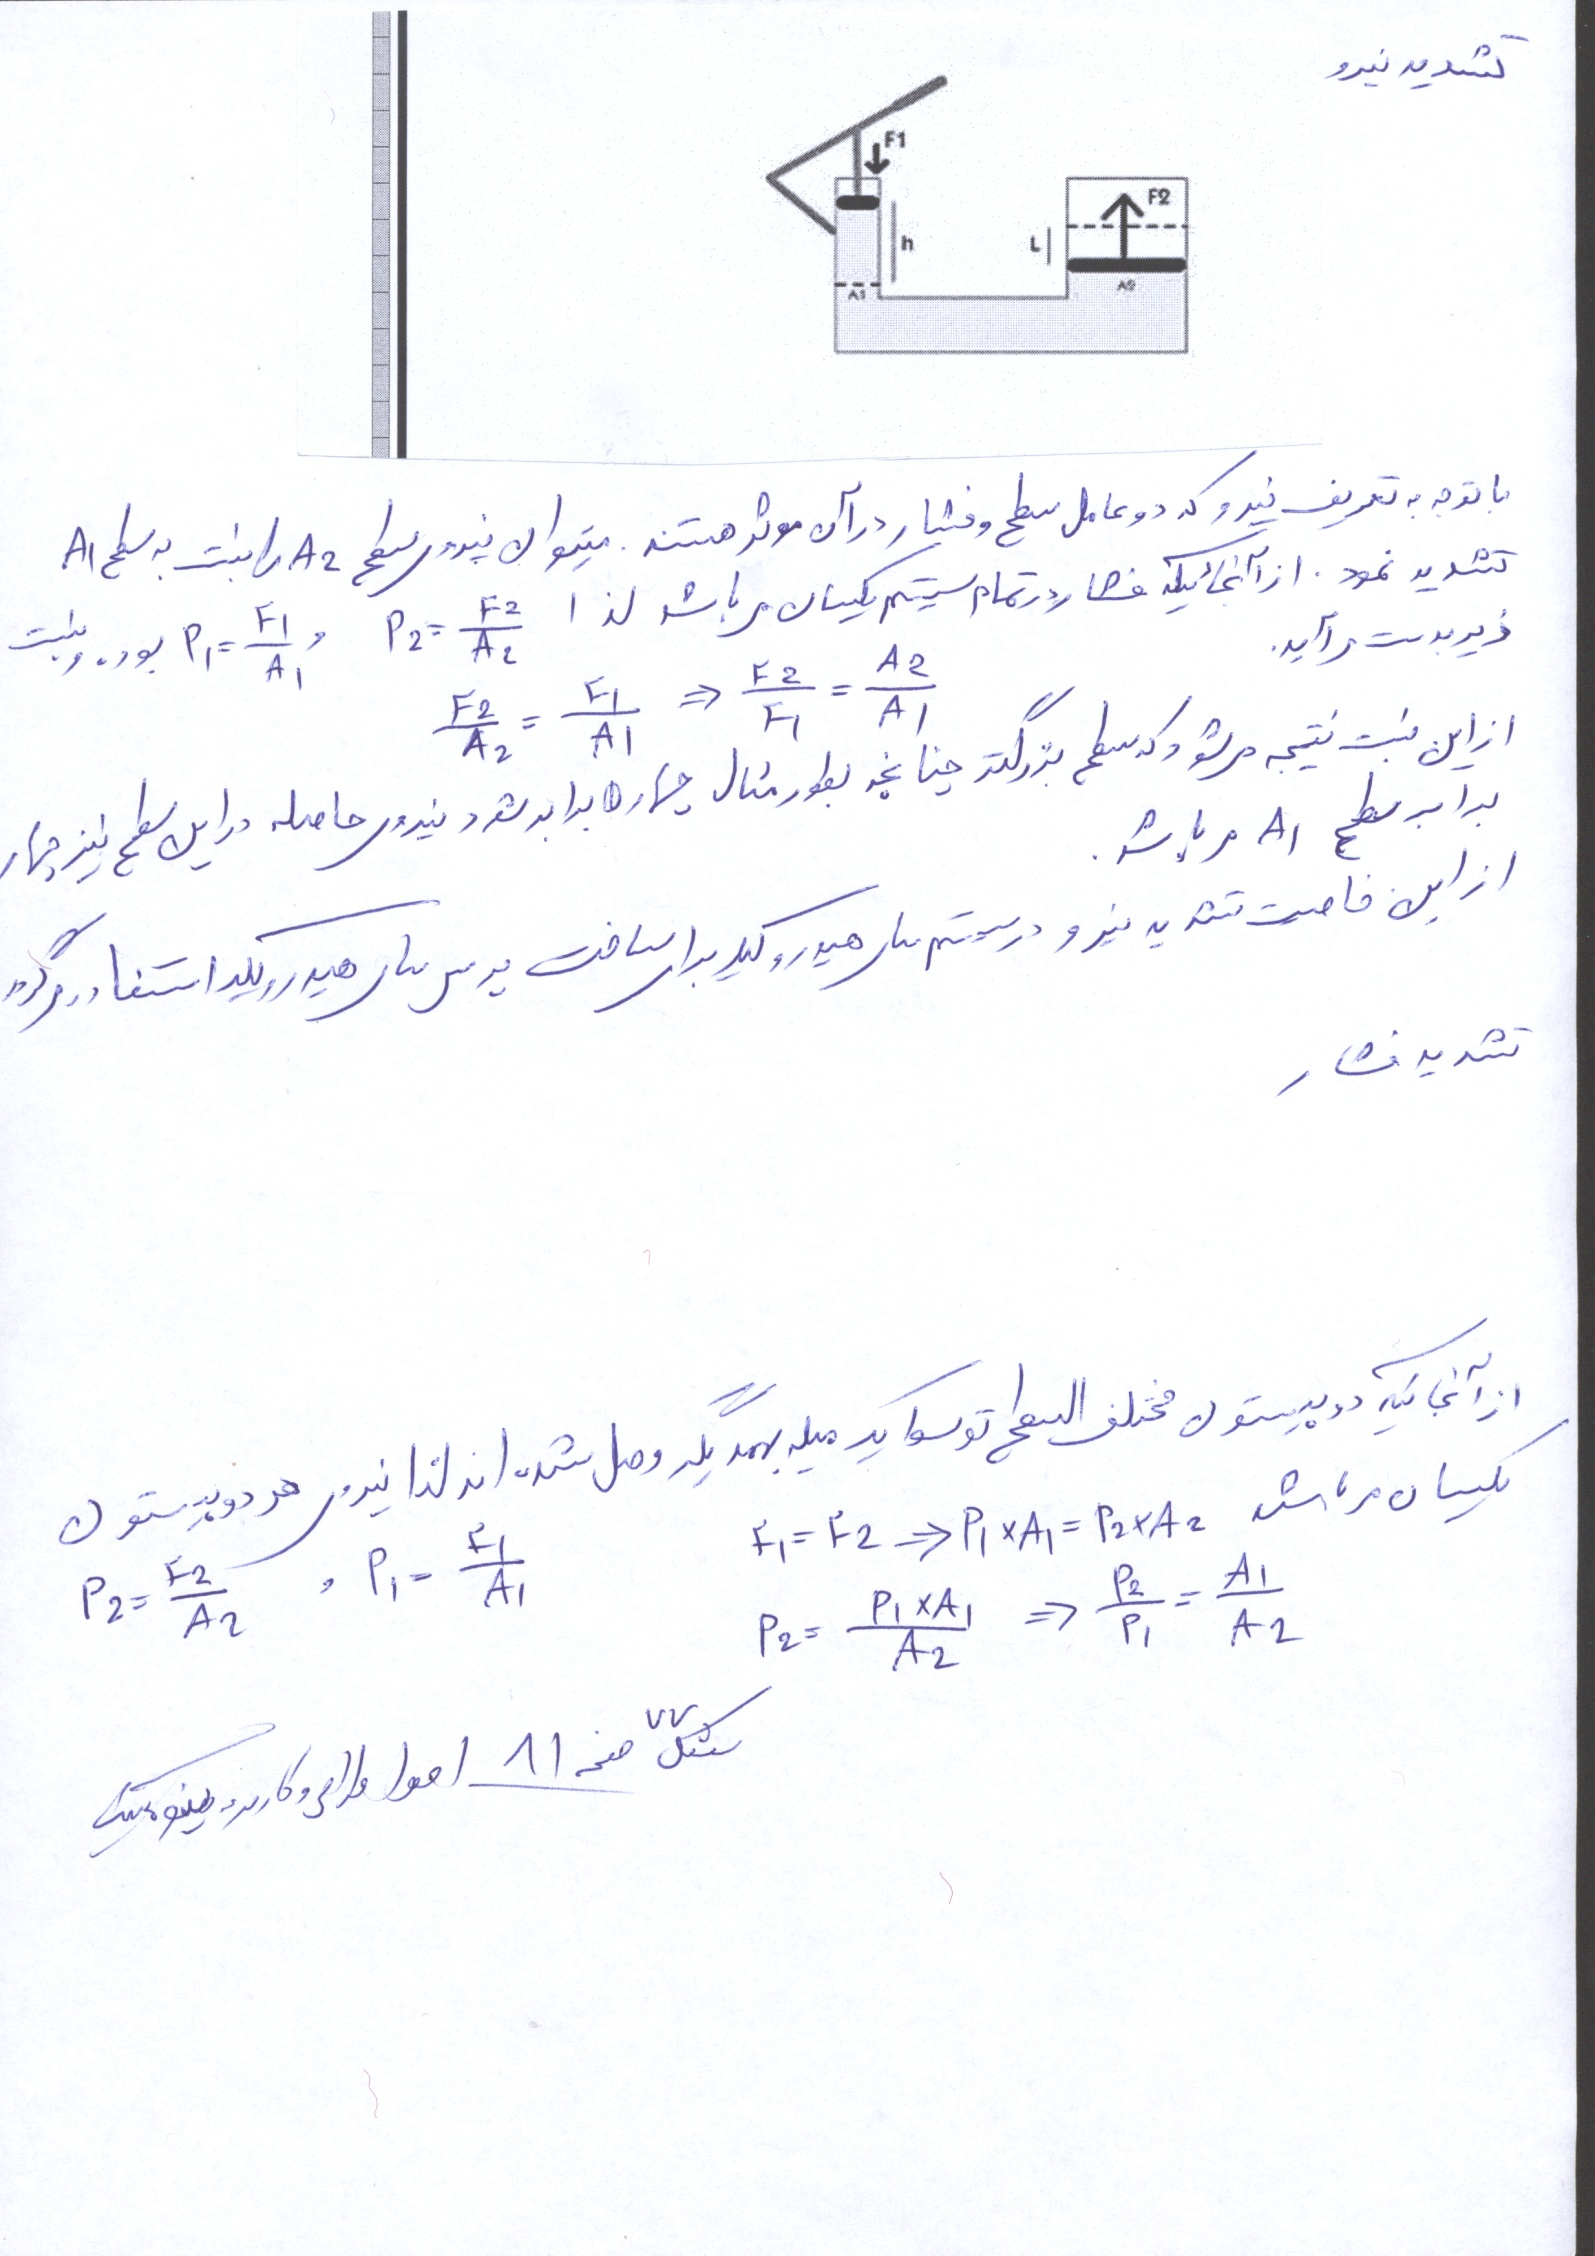 تشدید نیرو
F1
F2
h
L
A1
A2
با توجه به تعریف نیرو که دو عامل سطح و فشار در آن موثر هستند. میتوان نیروی سطح A2 را نسبت به سطح A1
تشدید نمود. از آنجائیکه فشار در تمام سیستم یکسان می باشد لذا P2 = F2/A2 و P1 = F1/A1 بوده و نسبت
زیر بدست می آید.
F2/A2 = F1/A1 ⇒ F2/F1 = A2/A1
از این نسبت نتیجه می شود که سطح بزرگتر چنانچه بطور مثال چهار برابر شود نیروی حاصله در این سطح نیز چهار
برابر سطح A1 می باشد.
از این خاصیت تشدید نیرو در سیستم های هیدرولیک برای ساخت پرس های هیدرولیک استفاده می گردد
تشدید فشار
از آنجائیکه دو پیستون مختلف السطح توسط یک میله بهمدیگر وصل شده اند لذا نیروی هر دو پیستون
یکسان می باشد F1 = F2 ⇒ P1 × A1 = P2 × A2
P2 = F2/A2 , P1 = F1/A1
P2 = P1 × A1/A2 ⇒ P2/P1 = A1/A2
شکل ۷۷ صفحه ۸۱ اصول طراحی و کاربرد